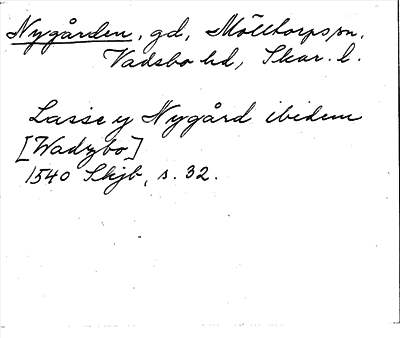 Nygården, gd, Mölltorps sn,
Vadsbo hd, Skar. l.
Lasse y Nygård ibidem
[Wadzbo]
1540 Skjb, s. 32.